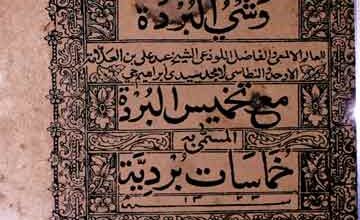 وشي البردة
للعالم الالمعي الفاضل اللوذعي الشيخ عبد علي بن العلامة
الاوحد النطاسي الامجد سيدي ابراهيم
مع تخميس البردة
المسمى به
خماسات بردية